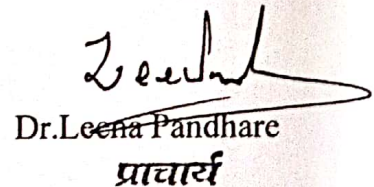 Dr.Leena Pandhare
प्राचार्य